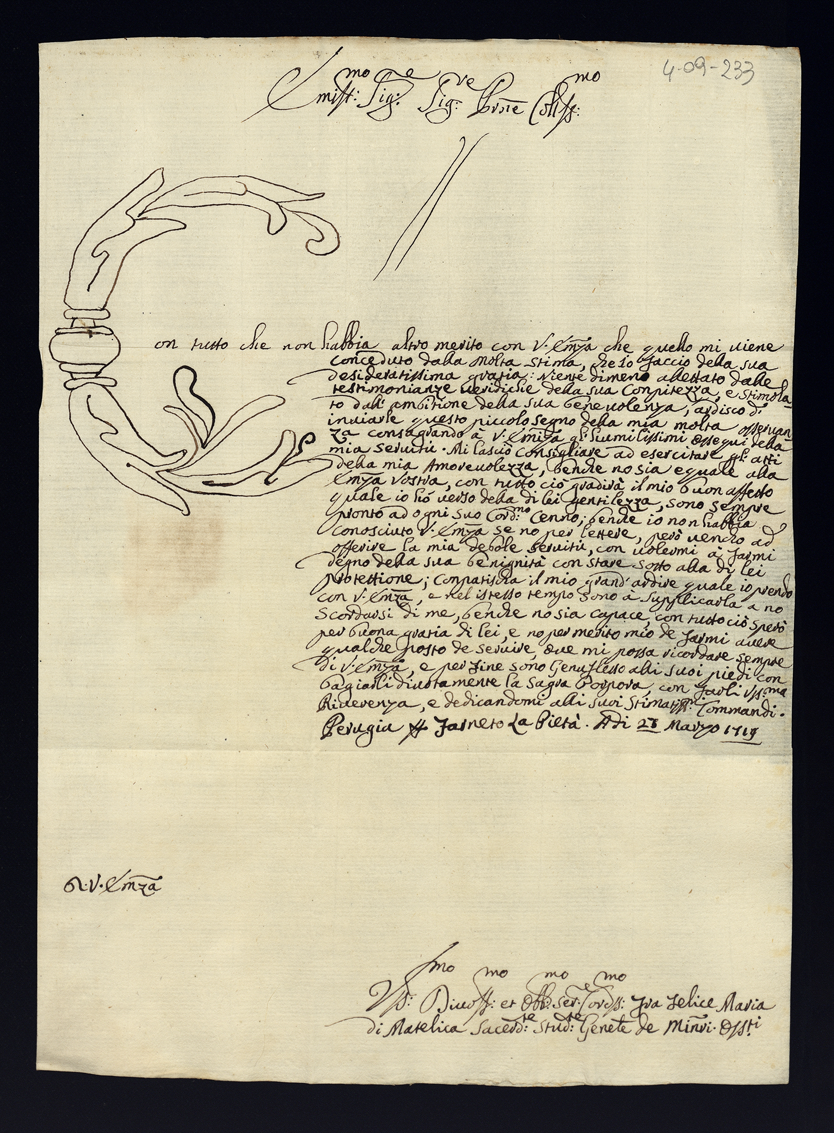 4-09-233
Emist:mo Sig:re Sig:re Prne Coll̃ss:mo
Con tutto che non habbia altro merito con V. Emza che quello mi uiene
conceduto dalla molta stima, che io faccio della sua
desideratissima gratia: niente dimeno allettato dalle
testimonianze ueridiche della sua Compitezza, e stimola=
to dall' ambitione della sua beneuolenza, ardisco d'
inuiarle questo piccolo segno della mia molta osseruan
za consagrando à V. Emza gl' humilissimi ossequi della
mia seruitù. Mi lascio consigliare ad esercitare gl' atti
della mia Amoreuolezza, benche no sia eguale alla
Emza Vostra, con tutto ciò gradirà il mio buon affetto
quale io hò uerso della di lei gentilezza, sono sempre
pronto ad ogni suo Cord:mo Cenno; benche io non habbia
conosciuto V. Emza se no per lettere, però uengo ad
offerire la mia debole seruitù, con uolermi à farmi
degno della sua benignità con stare sotto alla di lei
protettione; Conpatischa il mio grand' ardire quale io prendo
con V. Emza, e nel istesso tempo sono à supplicarla a no
scordarsi di me, benche no sia capace, con tutto ciò sperò
per buona gratia di lei, e no per merito mio de farmi auere
qualche posto de seruire oue mi possa ricordare sempre
di V. Emza, e per fine sono Genuflesso alli suoi piedi con
bagiarli diuotamente la Sagra Porpora, con farli
Riuerenza, e dedicandomi alli suoi Stimatiss:mi Commandi.
Perugia Farneto La Pietà. Adi 28 Marzo 1719
D. V. Emza
Diuoss:mo et Obb:mo Ser:re Fra Felice Maria
di Matelica Sacerd:te Stud:te Genele de Minri. Osst:i